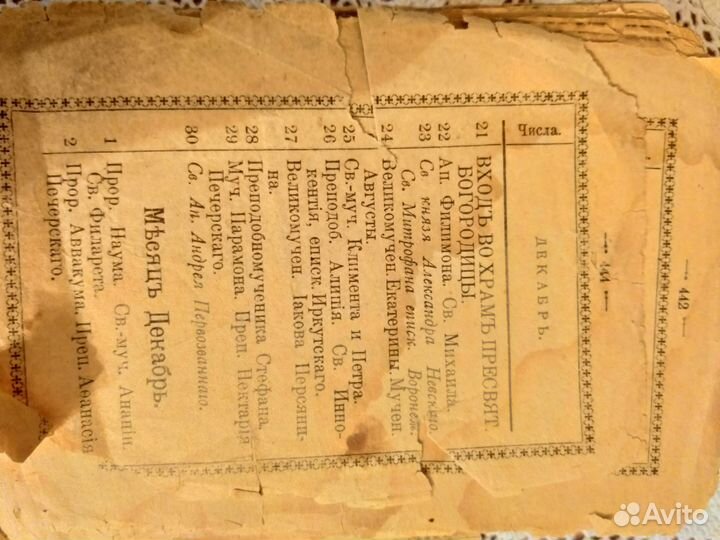 — 442 —
— 444 —
Числа.
ДЕКАБРЬ.
21 ВХОДЪ ВО ХРАМЪ ПРЕСВЯТ.
БОГОРОДИЦЫ.
22 Ап. Филимона. Св. Михаила.
23 Св князя Александра Невскаго.
Св. Митрофана еписк. Воронеж.
24 Великомучен. Екатерины. Мучен.
Августы.
25 Св.-муч. Климента и Петра.
26 Преподоб. Алипія. Св. Инно-
кентія, еписк. Иркутскаго.
27 Великомучен. Іакова Персяни-
на.
28 Преподобномученика Стефана.
29 Муч. Парамона. Преп. Нектарія
Печерскаго.
30 Св. Ап. Андрея Первозваннаго.
Мѣсяцъ Декабрь.
1 Прор. Наума. Св.-муч. Ананіи
Св. Филарета.
2 Прор. Аввакума. Преп. Аѳанасія
Печерскаго.
Avito